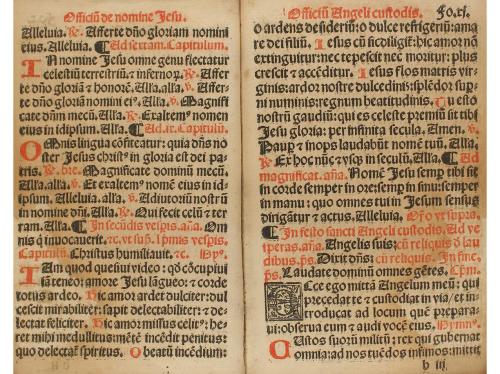 Officiũ de nomine Jesu.
Alleluia. ℟. Afferte dño gloriam nomini
eius. Alleluia. ¶ Ad sextam. Capitulum.
IN nomine Jesu omne genu flectatur
celestiũ terrestriũ et infernoꝝ. ℟. Affer-
te dño gloriã et honorẽ. Alla. alla. ℣. Affer-
te dño gloriã nomini ei⁹. Alla. ℣. Magnifi
cate dñm mecũ. Alla. ℟. Exaltem⁹ nomen
eius in idipsum. Alla. ¶ Ad .ix. Capitulũ.
OMnis lingua cõfiteatur: quia dñs no-
ster Jesus christ⁹ in gloria est dei pa-
tris. ℟. bre. Magnificate dominum mecũ.
Alla. alla. ℣. Et exaltem⁹ nomẽ eius in id-
ipsum. Alleluia. alla. ℣. Adiutoriũ nostrũ
in nomine dñi. Alla. ℟. Qui fecit celũ et ter-
ram. Alla. ¶ In secũdis vesp̃is. aña. Om-
nis q̃ inuocauerit. ⁊c. vt sup̃. I p̃mis vesp̃is.
Capitulũ. Christus humiliauit. ⁊c. Hy⁹.
IAm quod quesiui video: qd̃ cõcupiui
iã teneo: amore Jesu lãgueo: et corde
totus ardeo. Hic amor ardet dulciter: dul
cescit mirabiliter: sapit delectabiliter: et de-
lectat feliciter. Hic amor missus celit⁹: he-
ret mihi medullitus: mẽtẽ incẽdit penitus:
quo delectat̃ spiritus. O beatũ incẽdium:
Officiũ Angeli custodis. Fo.xi.
o ardens desideriũ: o dulce refrigeriũ: ama
re dei filiũ. Iesus cũ sic diligit̃: hic amor nõ
extinguitur: nec tepescit nec moritur: plus
crescit et accẽditur. Iesus flos matris vir-
ginis: ardor nostre dulcedinis: splẽdor sup̃-
ni numinis: regnum beatitudinis. Tu esto
nostrũ gaudiũ: qui es celeste premiũ: sit tibi
Jesu gloria: per infinita secula. Amen. ℣.
Paup̃ et inops laudabũt nomẽ tuũ. Alla.
℟. Ex hoc nũc et vsq̃ in seculũ. Alla. ¶ Ad
magnificat. aña. Nomẽ Jesu semp̃ tibi sit
in corde semper in ore: semp̃ in imu: semper
in manu: quo omnes tui in Jesum sensus
dirigãtur et actus. Alleluia. Oro vt supra.
¶ In festo sancti Angeli custodis. Ad ve
speras. aña. Angelis suis: cũ reliquis d̃ lau
dibus. p̃s. Dixit dñs: cũ reliquis. In fine:
p̃s. Laudate dominũ omnes gẽtes. Cp̃m.
ECce ego mittã Angelum meũ: qui
precedat te et custodiat in via: et in-
troducat ad locum quẽ prepara-
ui: obserua eum et audi vocẽ eius. Hymn⁹.
CUstos suorũ militũ: rex qui gubernat
omnia: ad nos tuẽdos infimos: mittit
b iii